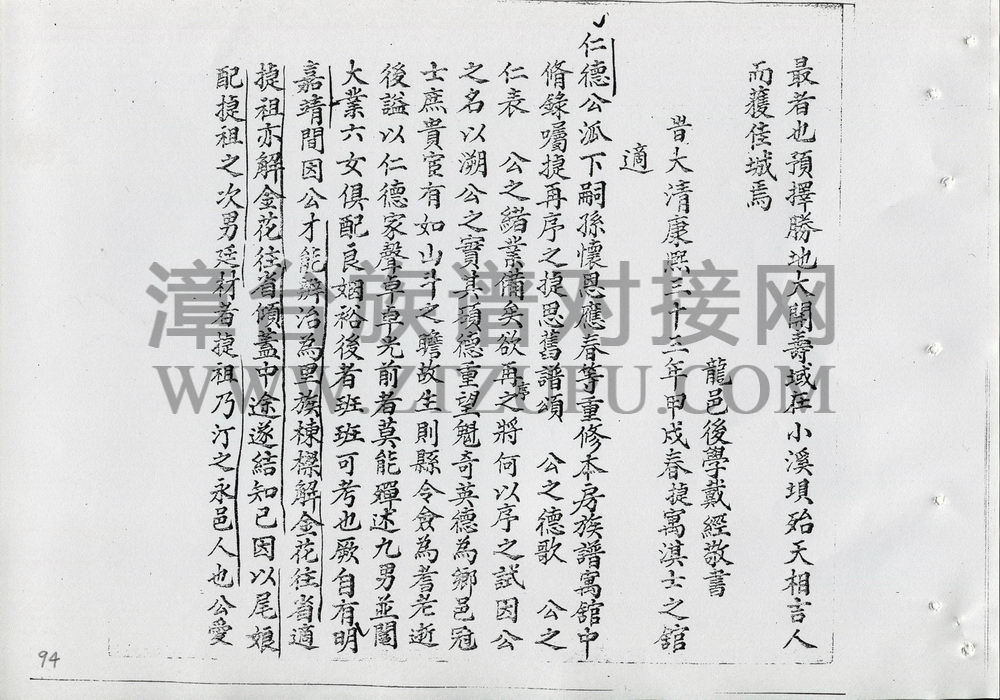 最者也預擇勝地大開壽域在小溪垻殆天相言人
而獲佳城焉
龍邑後學戴經敬書
昔大清康熙三十三年甲戌春捷寓淇士之舘
適
仁德公派下嗣孫懷恩應春等重修本房族譜寓舘中
脩錄囑捷再序之捷思舊譜頌 公之德歌 公之
仁表 公之緒業備矣欲再序之將何以序之試因公
之名以溯公之實其碩德重望魁奇英德為鄉邑冠
士庶貴宦有如山斗之瞻故生則縣令僉為耆老逝
後謚以仁德家聲卓卓光前者莫能殫述九男並闡
大業六女俱配良姻裕後者班班可考也厥自有明
嘉靖間因公才能辨治為里族棟樑解金花往省適
捷祖亦解金花往省傾蓋中途遂結知己因以尾娘
配捷祖之次男廷材者捷祖乃汀之永邑人也公愛
94
漳台族谱对接网
WWW.ZTZUPU.COM